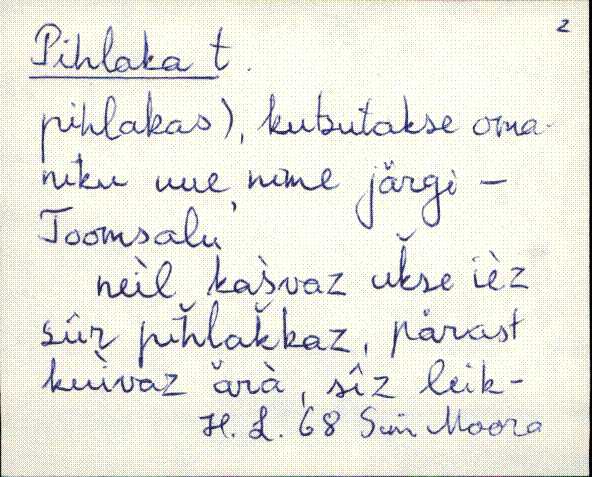 2
Pihlaka t.
pihlakas), kutsutakse oma-
niku uue nime järgi –
Toomsalu
neìl kàsvaz ŭkse ìèz
sûr pĭhlaǩkaz, pärast
kuìvaz ărà, sîz leik-
H. L. 68 Siiri Moora